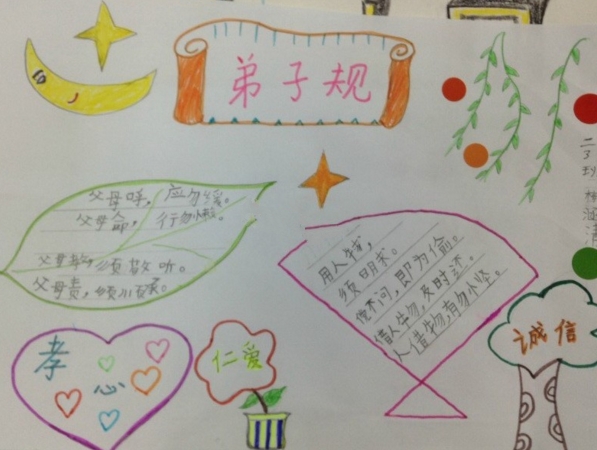 弟子规
二3班
父母呼，应勿缓。
父母命，行勿懒。
父母教，须敬听。
父母责，须顺承。
用人物，
须明求。
倘不问，即为偷。
借人物，及时还。
人借物，有勿悭。
孝
心
仁爱
诚信